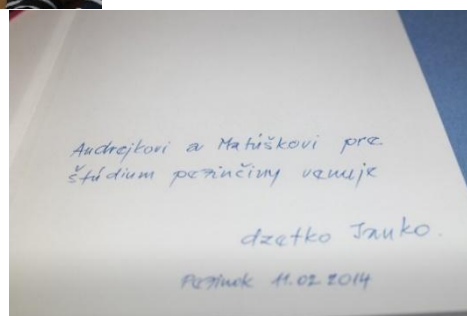 Andrejkovi a Matúškovi pre
štúdium pezinčiny venuje
dzetko Janko.
Pezinok 11.02.2014